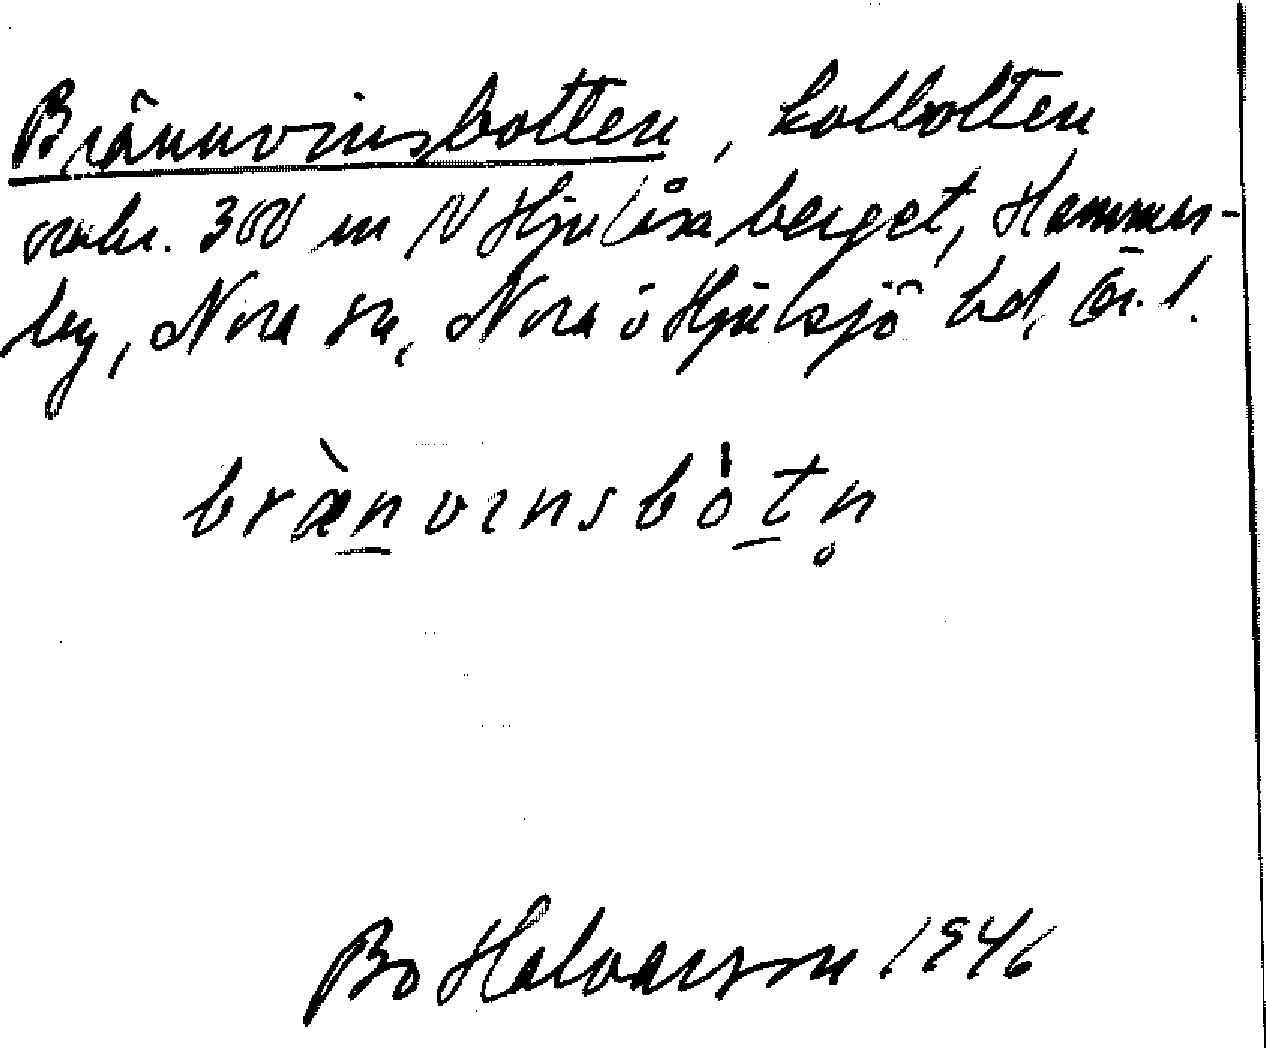 Brännvinsbotten, kolbotten
omkr. 300 m N Hjulåsaberget, Hammar-
by, Nora sn, Nora o Hjulsjö bd, Ör. l.
bræ̀nvinsbòtn̥
Bo Halvarsson 1946